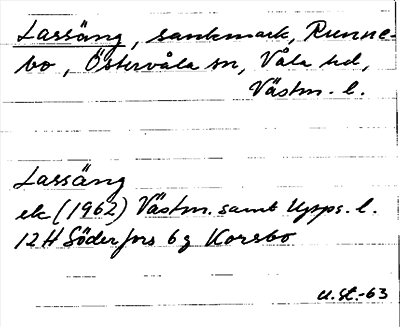 Lassäng, sankmark, Runne-
bo, Östervåla sn, Våla hd,
Västm. l.
Lassäng
ek (1962) Västm. samt Upps. l.
12H Söderfors 6g Korsbo
U.St.-63